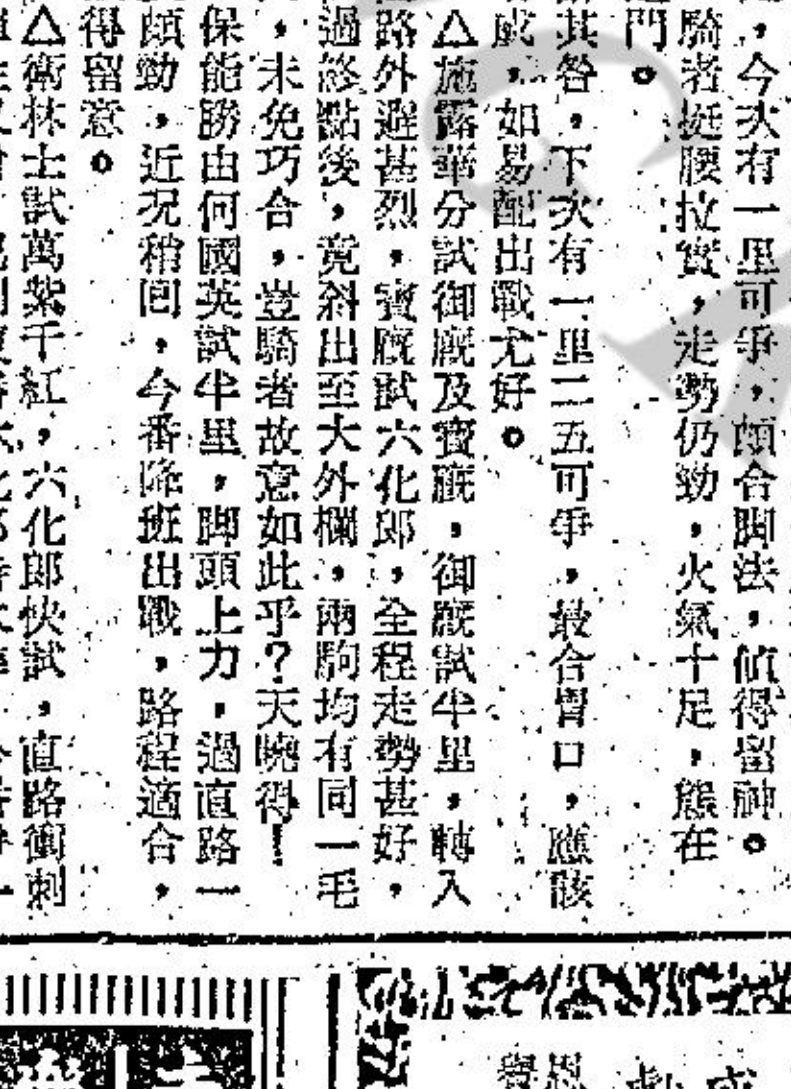 ，今次有一里可爭，頗合脚法，値得留神。
騎者挺腰拉實，走勢仍勁，火氣十足，態在
門。
其咎，下次有一里二五可爭，最合胃口，應該
，如易配出戰尤好。
△施露華分試御厩及寳厩，御厩試半里，轉入
路外避甚烈，寳厩試六化郎，全程走勢甚好，
過終點後，竟斜出至大外欄，兩駒均有同一毛
，未免巧合，豈騎者故意如此乎？天曉得！
保能勝由何國英試半里，脚頭上力，過直路一
頗勁，近況稍囘，今番降班出戰，路程適合，
得留意。
△衛林士試萬紫千紅，六化郎快試，直路衝刺